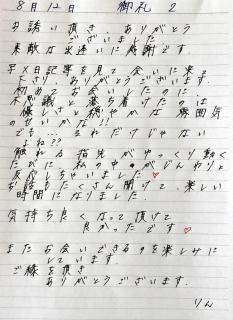 8月12日 御礼 2
お誘い頂き、ありがとう
ございました
素敵な出逢いに感謝です。
写メ日記等を見て会いに来て
下さり、ありがとうございます。
初めてお会いしたのに、
不思議と落ち着けたのは
優しさと穏やかな雰囲気
のせいかな??
でも…それだけじゃない
よね??
触れる指先がゆっくり動く
たびに私の中がじんわりと
反応しちゃいました♥
お話もたくさん聞けて、楽しい
時間になりました。
気持ち良くなって頂けて
良かったです♥
またお会いできるのを楽しみに
しています。
ご縁を頂き
ありがとうございます。
りん